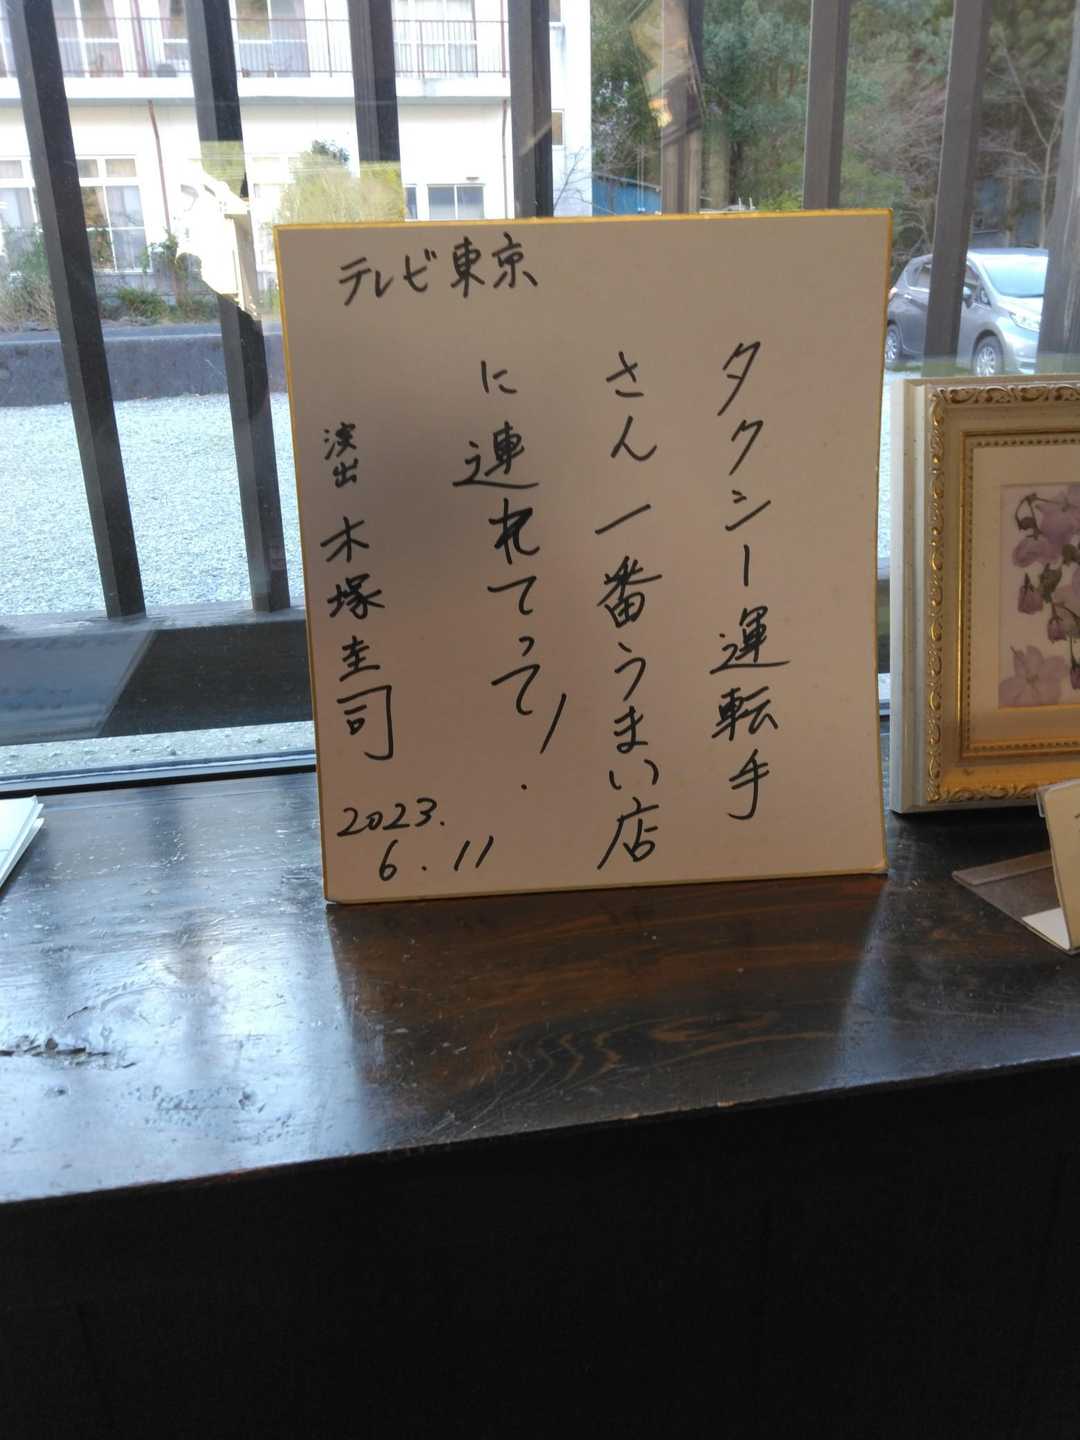 テレビ東京
タクシー運転手
さん一番うまい店
に連れてって!
演出 木塚圭司
2023.
6.11